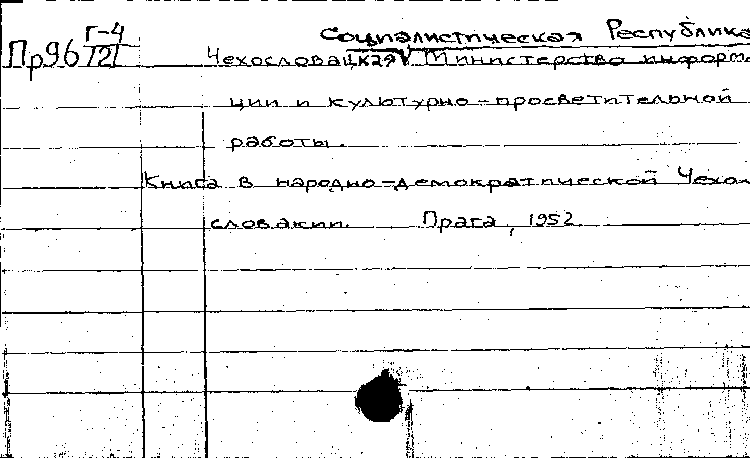 Пр96 Г-4/121
Социалистическая Республика
Чехословацкая Министерство информа
ции и культурно-просветительной
работы.
Книга в народно-демократической Чехо-
словакии. Прага, 1952